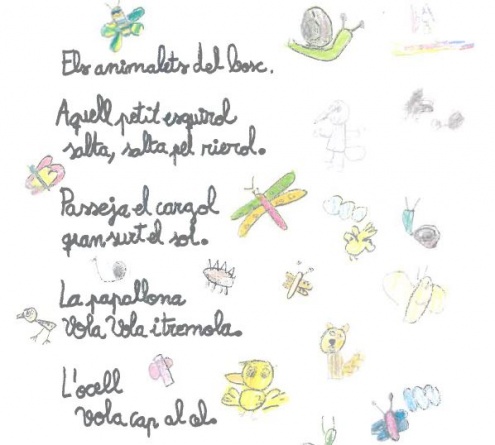 Els animalets del bosc.
Aquell petit esquirol
salta, salta pel rierol.
Passeja el cargol
quan surt el sol.
La papallona
Vola Vola i tremola.
L'ocell
vola cap al cel.